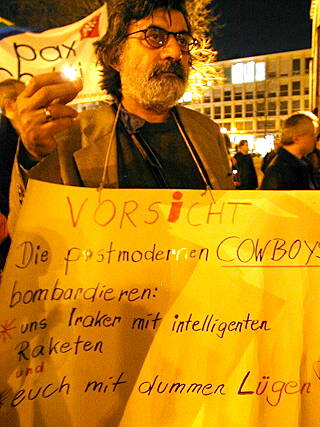 pax
VORSICHT
Die postmodernen COWBOYS
bombardieren:
* uns Iraker mit intelligenten
Raketen
und
* euch mit dummen Lügen